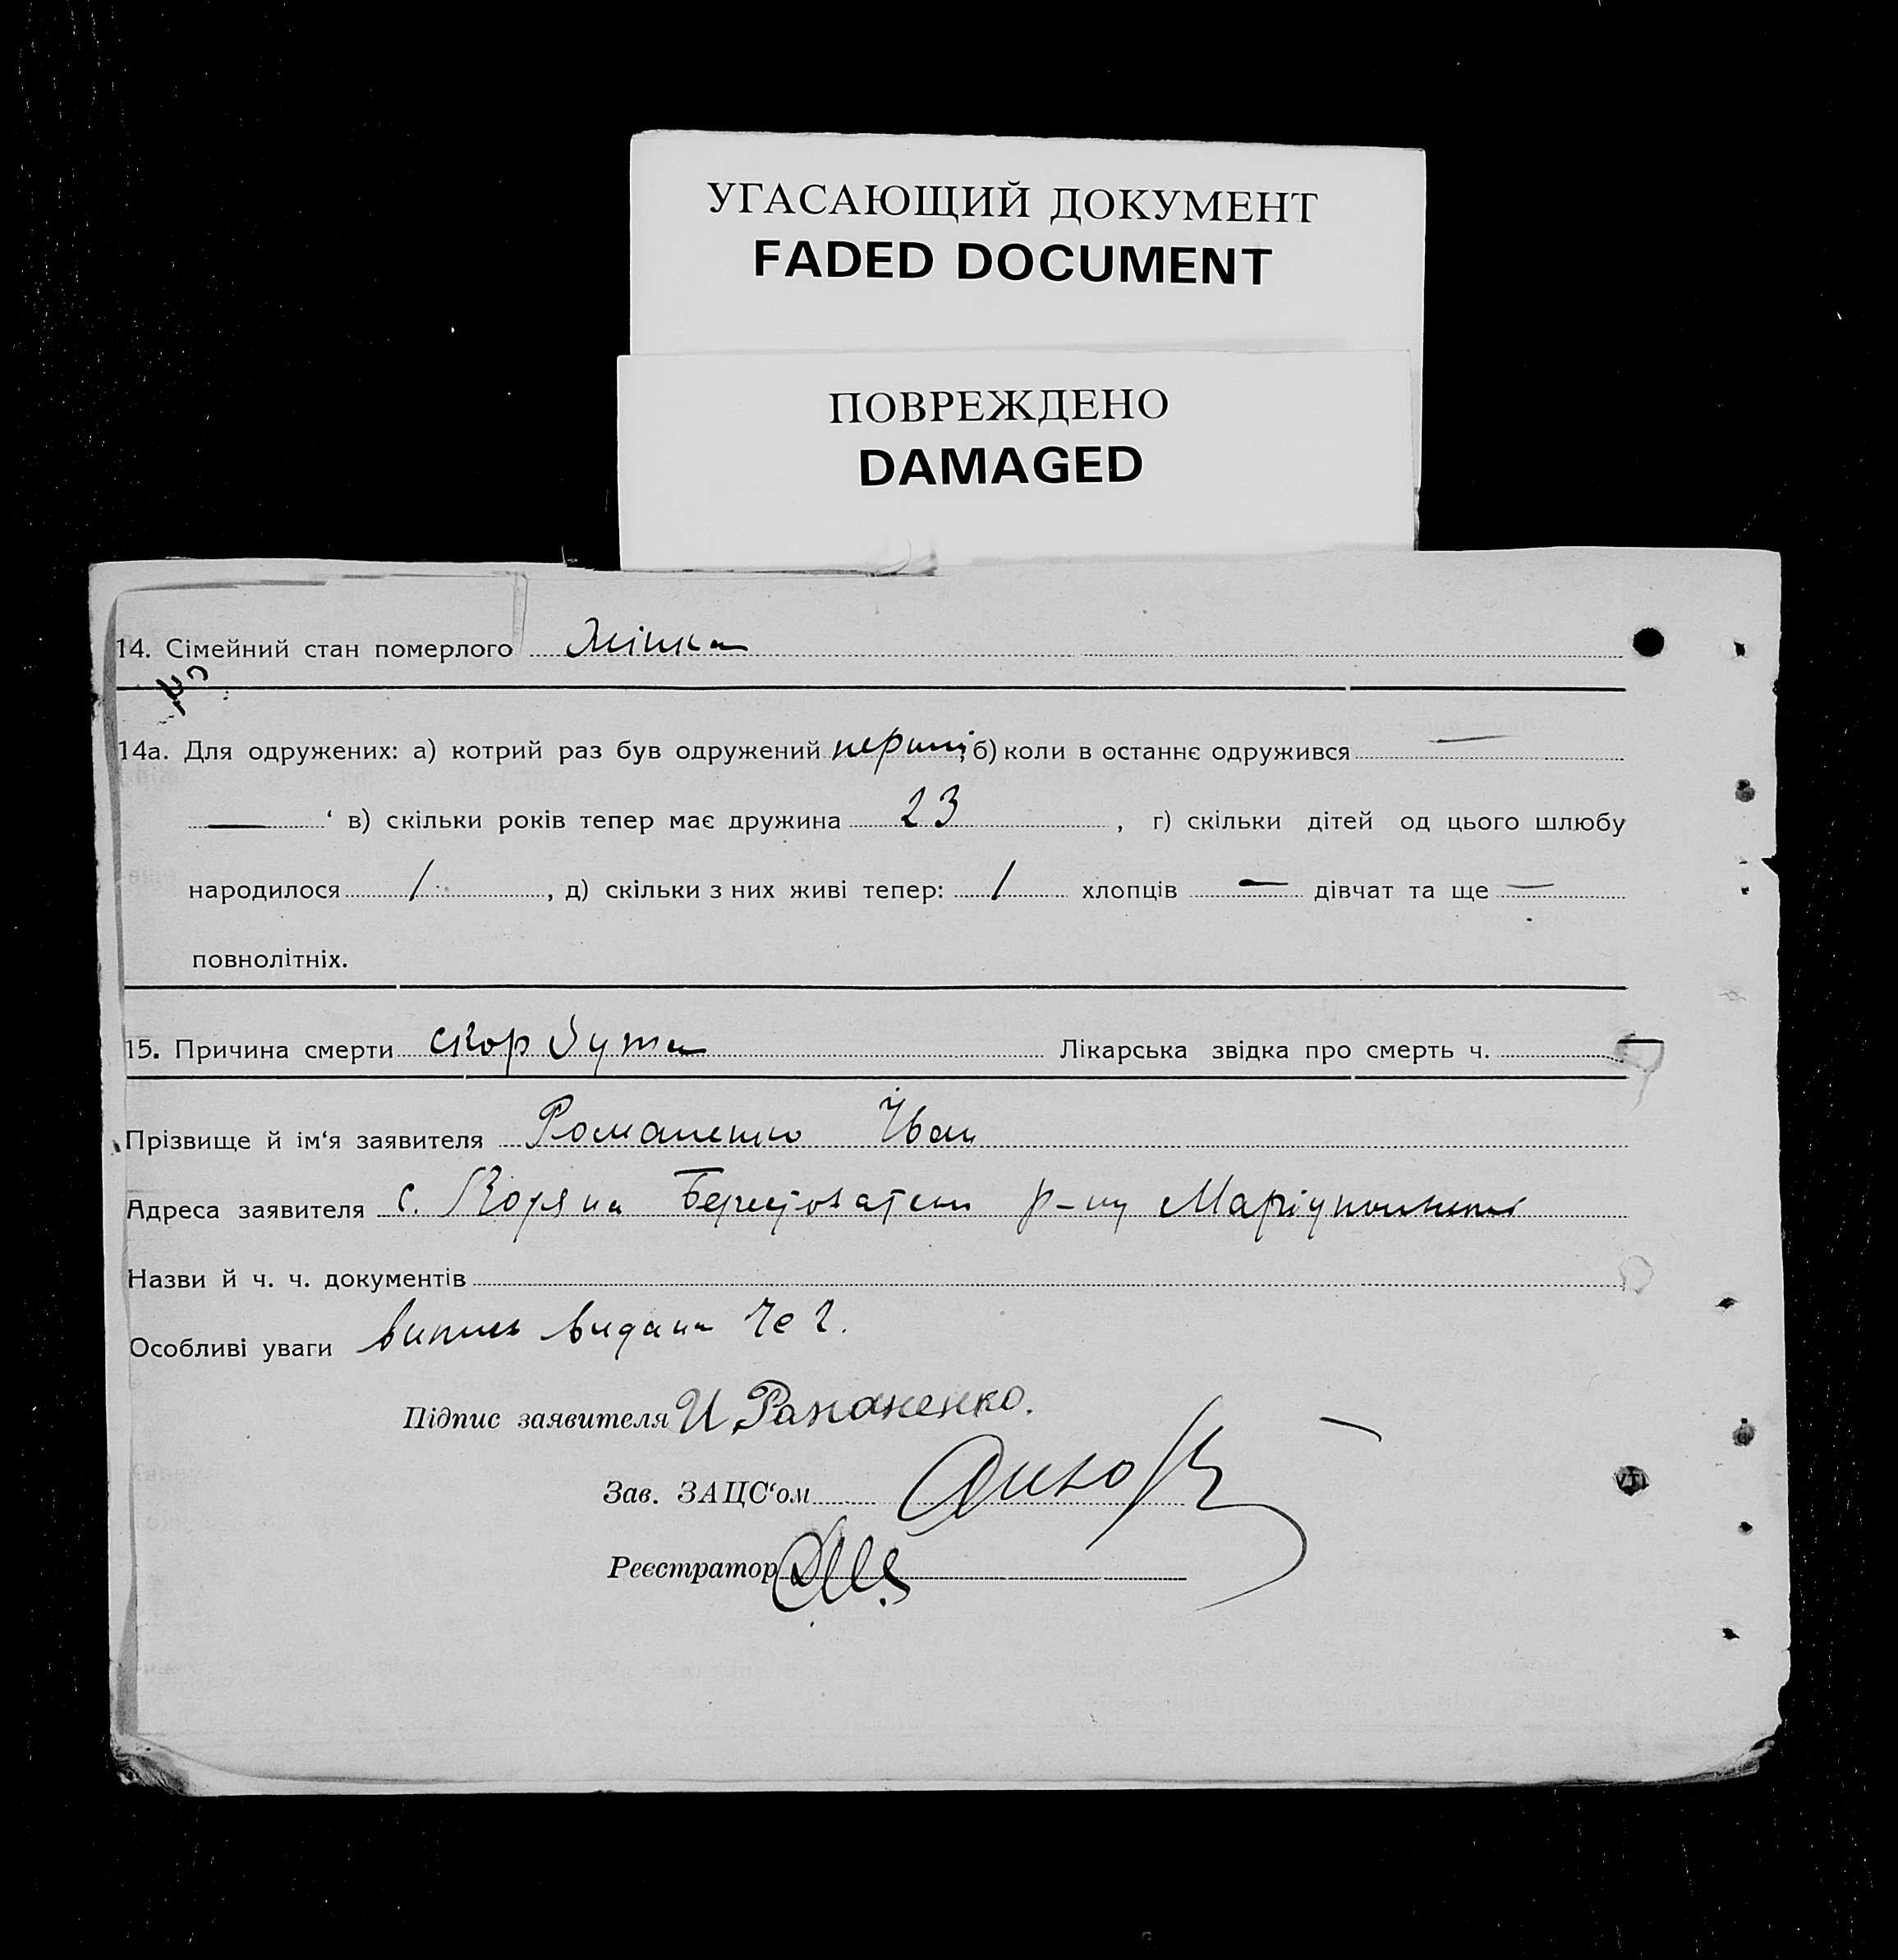 УГАСАЮЩИЙ ДОКУМЕНТ
FADED DOCUMENT
ПОВРЕЖДЕНО
DAMAGED
14. Сімейний стан померлого
14а. Для одружених: а) котрий раз був одружений перший; б) коли в останнє одружився —
— ‘ в) скільки років тепер має дружина 23, г) скільки дітей од цього шлюбу
народилося 1, д) скільки з них живі тепер: 1 хлопців — дівчат та ще —
повнолітніх.
15. Причина смерти скорбута Лікарська звідка про смерть ч. —
Прізвище й ім‘я заявителя Романенко Іван
Адреса заявителя с. р-ну
Назви й ч. ч. документів
Особливі уваги випись видана
Підпис заявителя И Раманенко.
Зав. ЗАЦС‘ом
Реєстратор